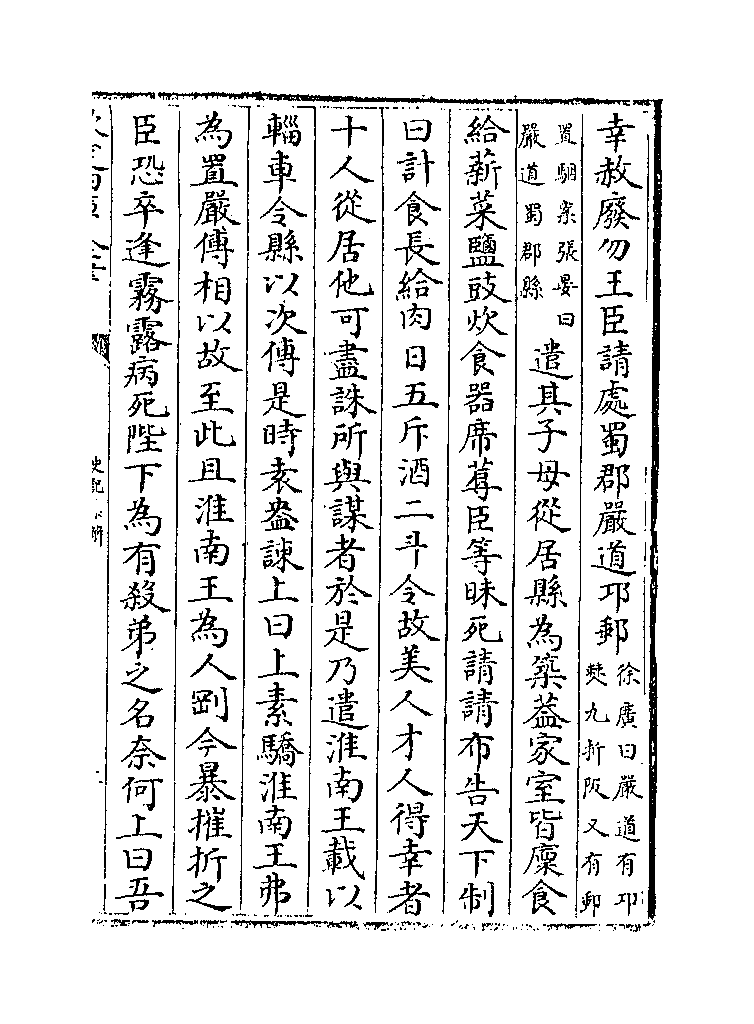 幸赦廢勿王臣請處蜀郡嚴道邛郵徐廣曰嚴道有邛僰九折阪又有郵
置駰案張晏曰嚴道蜀郡縣遣其子母從居縣為築葢家室皆廩食
給薪菜鹽豉炊食器席蓐臣等昧死請請布告天下制
曰計食長給肉日五斤酒二斗令故美人才人得幸者
十人從居他可盡誅所與謀者於是乃遣淮南王載以
輜車令縣以次傳是時袁盎諫上曰上素驕淮南王弗
為置嚴傅相以故至此且淮南王為人剛今暴摧折之
臣恐卒逢霧露病死陛下為有殺弟之名奈何上曰吾
史記